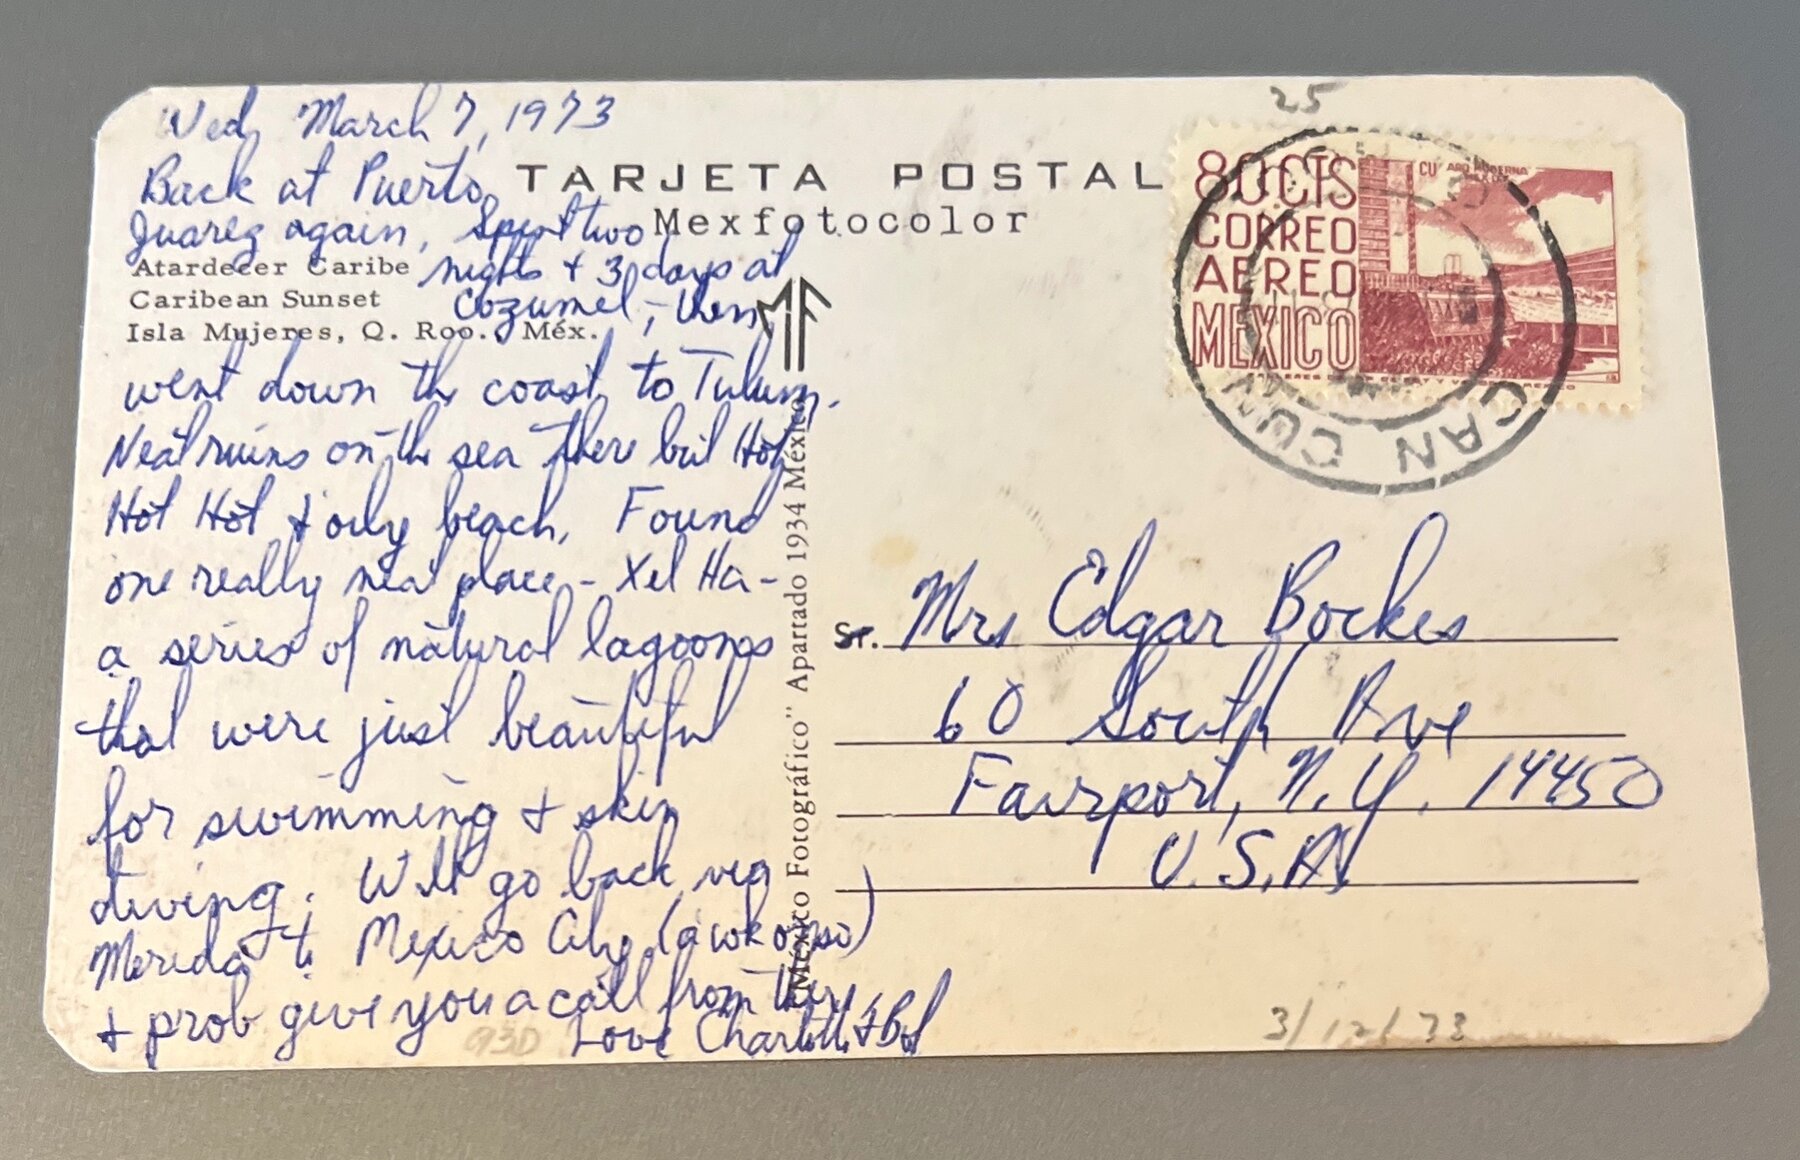 Wed, March 7, 1973
Back at Puerto
Juarez again, Spent two
nights + 3 days at
Cozumel, - then
went down the coast to Tulum.
Neat ruins on the sea there but Hot
Hot Hot + oily beach. Found
one really neat place - Xel Ha -
a series of natural lagoons
that were just beautiful
for swimming + skin
diving. Will go back via
Merida + Mexico City (a wk or so)
+ prob give you a call from there
Love Charlotte + Bob
Atardecer Caribe
Caribean Sunset
Isla Mujeres, Q. Roo., Méx.
TARJETA POSTAL
Mexfotocolor
MF
"México Fotográfico" Apartado 1934 México
25
80 CTS
CORREO
AEREO
MEXICO
CU ARQ MODERNA
MEXICO
CAN CUN
Sr. Mrs Edgar Bockes
60 South Ave
Fairport, N.Y. 14450
U.S.A.
930
3/12/73